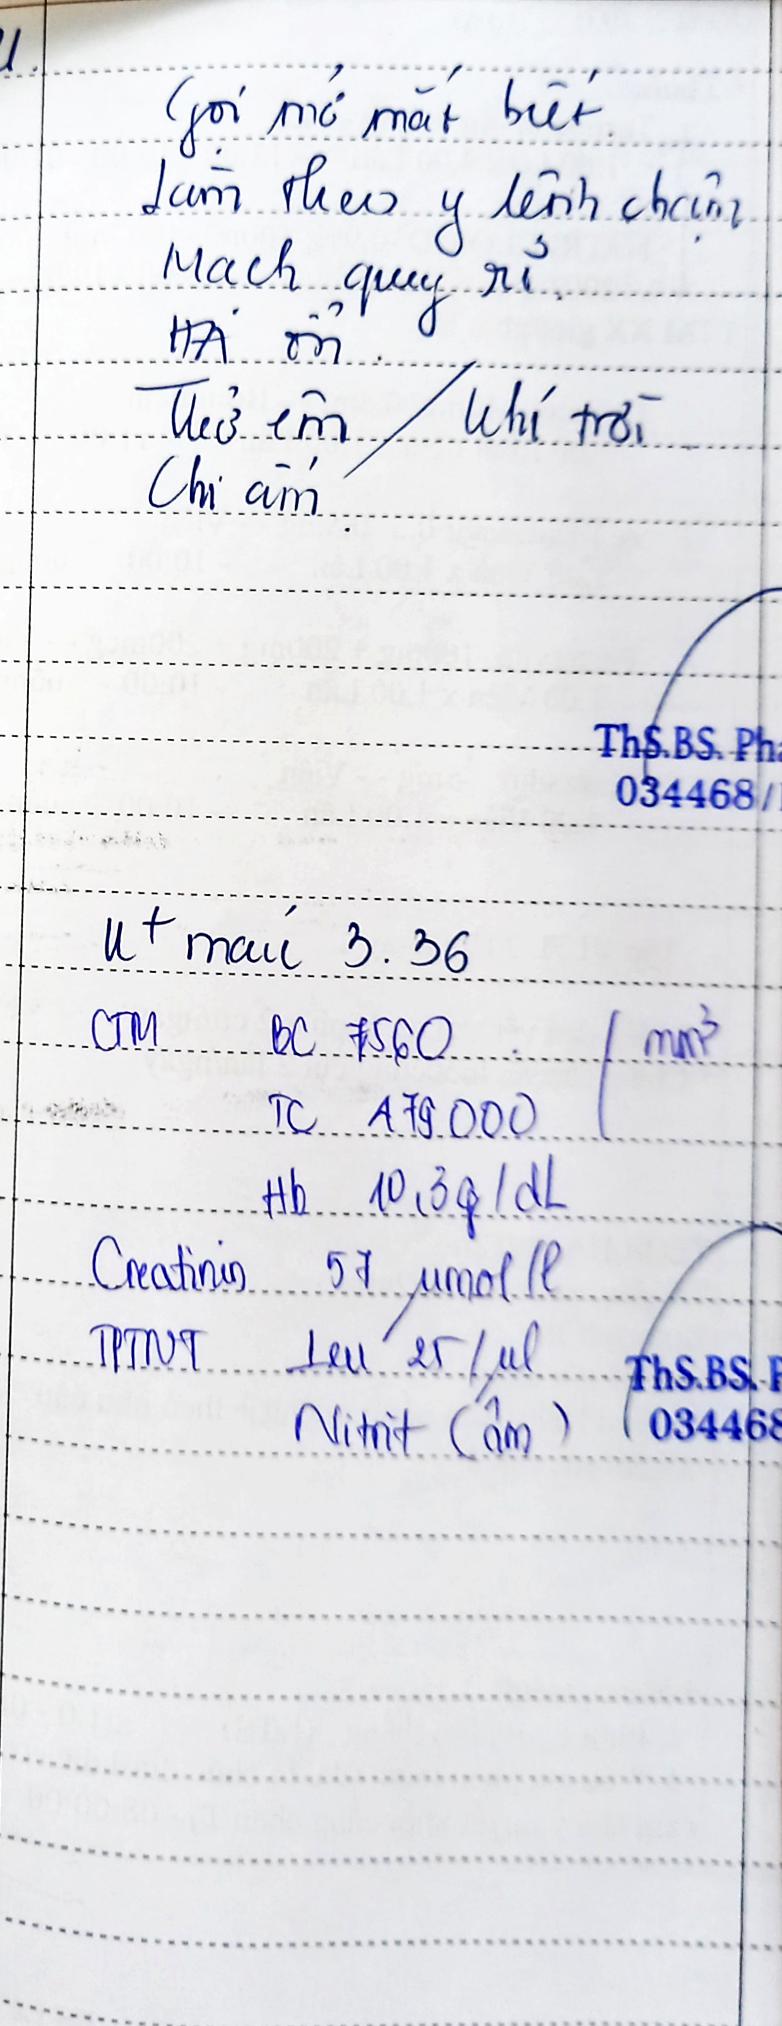 Gọi mở mắt biết
Làm theo y lệnh chậm
Mạch quay rõ
HA ổn.
Thở êm / khí trời
Chi ấm.
ThS.BS. Pha
034468/
K+ máu 3.36
CTM BC 7560 / mm³
TC 479000
Hb 10,3g/dL
Creatinin 57 µmol/l
TPTNT Leu 25/µl
ThS.BS. P
Nitrit (âm)
034468